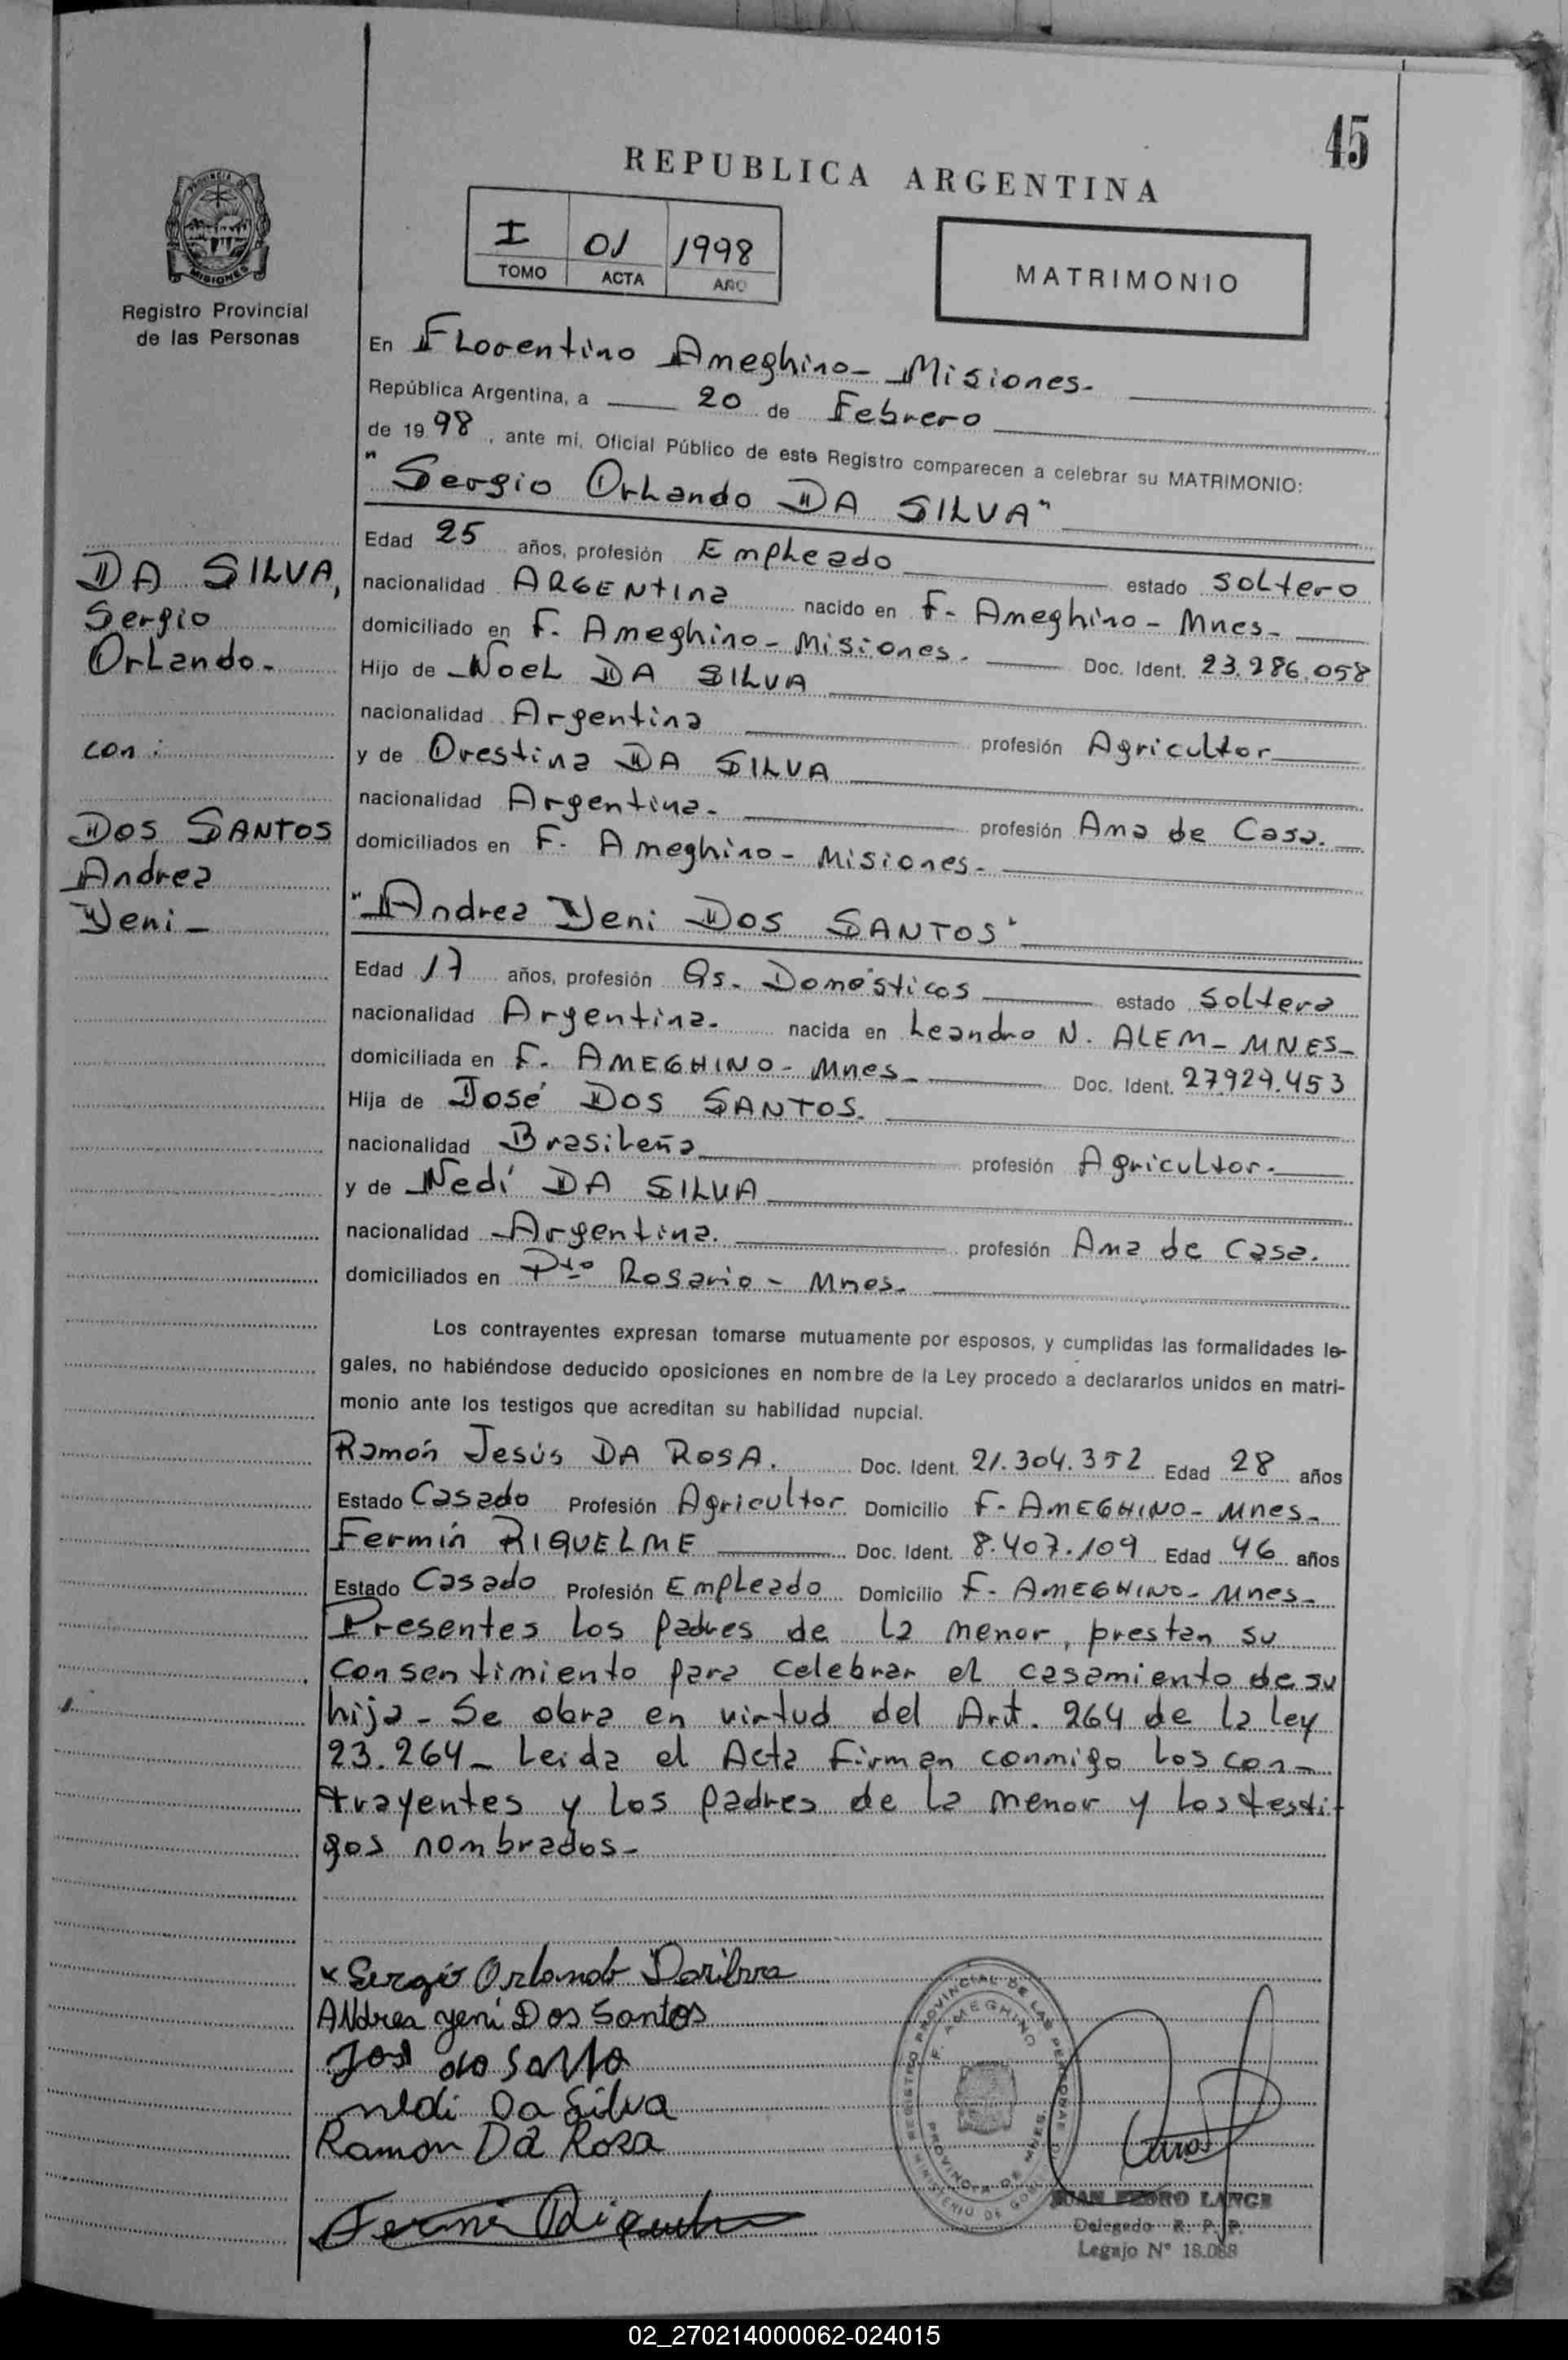 45
REPUBLICA ARGENTINA
I 01 1998
TOMO ACTA AÑO
MATRIMONIO
PROVINCIA DE
MISIONES
Registro Provincial
de las Personas
En Florentino Ameghino - Misiones -
República Argentina, a 20 de Febrero
de 19 98 , ante mí, Oficial Público de este Registro comparecen a celebrar su MATRIMONIO:
"Sergio Orlando DA SILVA"
Edad 25 años, profesión Empleado estado soltero
nacionalidad ARGENtina nacido en F. Ameghino - Mnes -
domiciliado en F. Ameghino - Misiones. Doc. Ident. 23.286.058
Hijo de Noel DA SILVA
nacionalidad Argentina profesión Agricultor
y de Orestina DA SILVA
nacionalidad Argentina - profesión Ama de Casa.
domiciliados en F. Ameghino - Misiones -
DA SILVA,
Sergio
Orlando -
con :
DOS SANTOS
Andrea
Yeni -
"Andrea Yeni DOS SANTOS"
Edad 17 años, profesión Qs. Domésticos estado soltera
nacionalidad Argentina. nacida en Leandro N. ALEM - MNES -
domiciliada en F. AMEGHINO - Mnes - Doc. Ident. 27.929.453
Hija de José DOS SANTOS.
nacionalidad Brasileña profesión Agricultor.
y de Nedí DA SILVA
nacionalidad Argentina. profesión Ama de Casa.
domiciliados en Pto Rosario - Mnes.
Los contrayentes expresan tomarse mutuamente por esposos, y cumplidas las formalidades le-
gales, no habiéndose deducido oposiciones en nombre de la Ley procedo a declararlos unidos en matri-
monio ante los testigos que acreditan su habilidad nupcial.
Ramón Jesús DA ROSA. Doc. Ident. 21.304.352 Edad 28 años
Estado Casado Profesión Agricultor Domicilio F. AMEGHINO - Mnes -
Fermín RIQUELME Doc. Ident. 8.407.109 Edad 46 años
Estado Casado Profesión Empleado Domicilio F. AMEGHINO - Mnes -
Presentes los padres de la menor, prestan su
consentimiento para celebrar el casamiento de su
hija - Se obra en virtud del Art. 264 de la ley
23.264 - Leida el Acta firman conmigo los con-
trayentes y los padres de la menor y los testi-
gos nombrados -
x Sergio Orlando Dasilva
Andrea yeni Dos Santos
nedi Da Silva
Ramon Da Rosa
REGISTRO PROVINCIAL DE LAS PERSONAS
F. AMEGHINO
PROVINCIA DE MNES.
MINISTERIO DE GOB.
JUAN PEDRO LANGE
Delegado R. P. P.
Legajo Nº 18.088
02_270214000062-024015